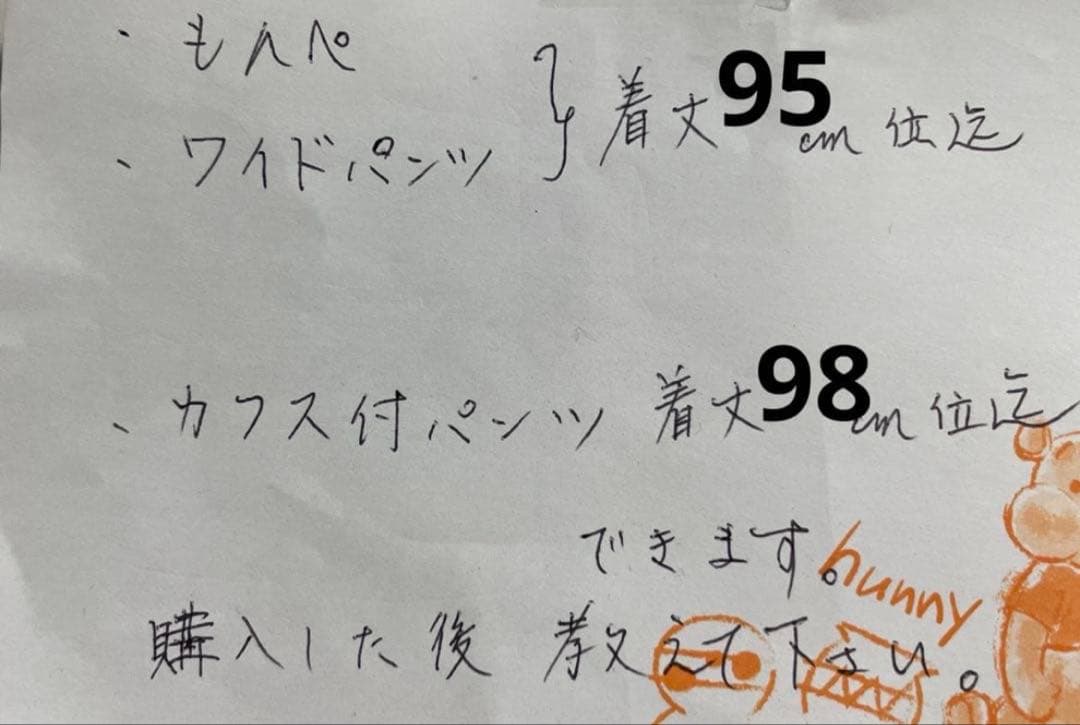 ・もんぺ
・ワイドパンツ } 着丈95cm位迄
・カフス付パンツ 着丈98cm位迄
できます。
hunny
購入した後 教えて下さい。